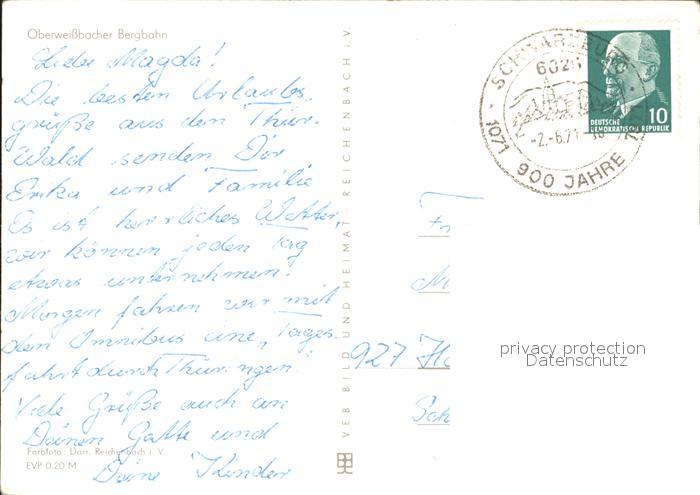 Oberweißbacher Bergbahn
Liebe Magda!
Die besten Urlaubs-
grüße aus dem Thür.
Wald senden Dir
Erika und Familie
Es ist herrliches Wetter,
wir können jeden Tag
etwas unternehmen.
Morgen fahren wir mit
dem Omnibus eine „Tages-
fahrt durch Thüringen."
Viele Grüße auch an
Deinen Gatte und
Deine Kinder
Farbfoto: Darr, Reichenbach i. V.
EVP 0.20 M
VEB BILD UND HEIMAT REICHENBACH i. V.
SCHWARZBURG
6821
-2.-6.71
1071 900 JAHRE
10
DEUTSCHE
DEMOKRATISCHE REPUBLIK
Fr
M
927 Ho
Sch
privacy protection
Datenschutz